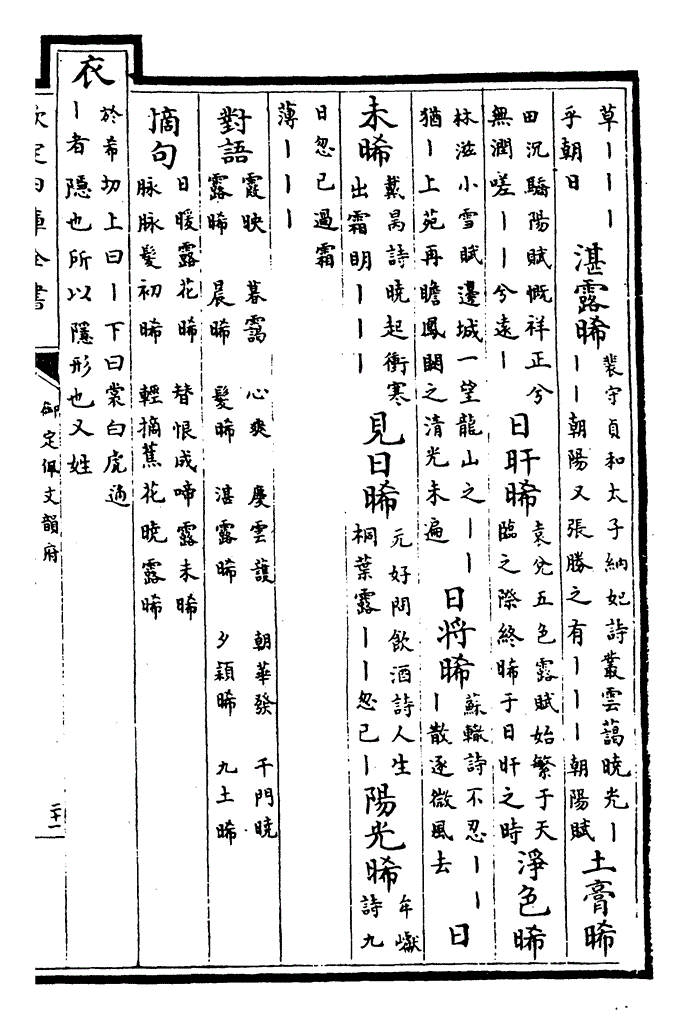 草｜｜｜
乎朝日
湛露晞
裴守貞和太子納妃詩叢雲藹曉光｜
｜｜朝陽又張勝之有｜｜｜朝陽賦
土膏晞
田沉驕陽賦慨祥正兮
無潤嗟｜｜兮遠｜
日旰晞
袁兊五色露賦始繁于天
臨之際終晞于日旰之時
淨色晞
林滋小雪賦邊城一望龍山之｜｜
猶｜上苑再瞻鳳闕之清光未遍
日將晞
蘇轍詩不忍｜｜
｜散逐微風去
日
未晞
戴昺詩曉起衝寒
出霜明｜｜｜
見日晞
元好問飲酒詩人生
桐葉露｜｜忽已｜
陽光晞
牟巘
詩九
日忽已過霜
薄｜｜｜
對語
霞映　暮靄　心爽　慶雲護　朝華發　千門曉
露晞　晨晞　髮晞　湛露晞　夕穎晞　九土晞
摘句
日暖露花晞　替恨成啼露未晞
脉脉髮初晞　輕摘蕉花曉露晞
衣
於希切上曰｜下曰裳白虎通
｜者隱也所以隱形也又姓
欽定四庫全書
御定佩文韻府
二十一